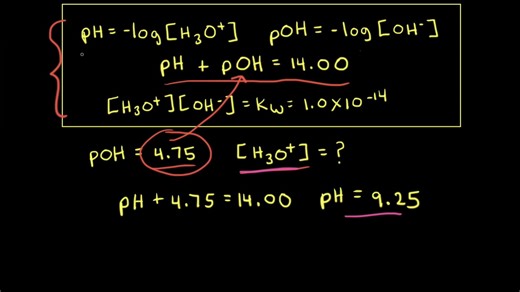 pH = -log[H₃O⁺] pOH = -log[OH⁻]
pH + pOH = 14.00
[H₃O⁺][OH⁻] = Kw = 1.0 x 10⁻¹⁴
pOH = 4.75 [H₃O⁺] = ?
pH + 4.75 = 14.00 pH = 9.25